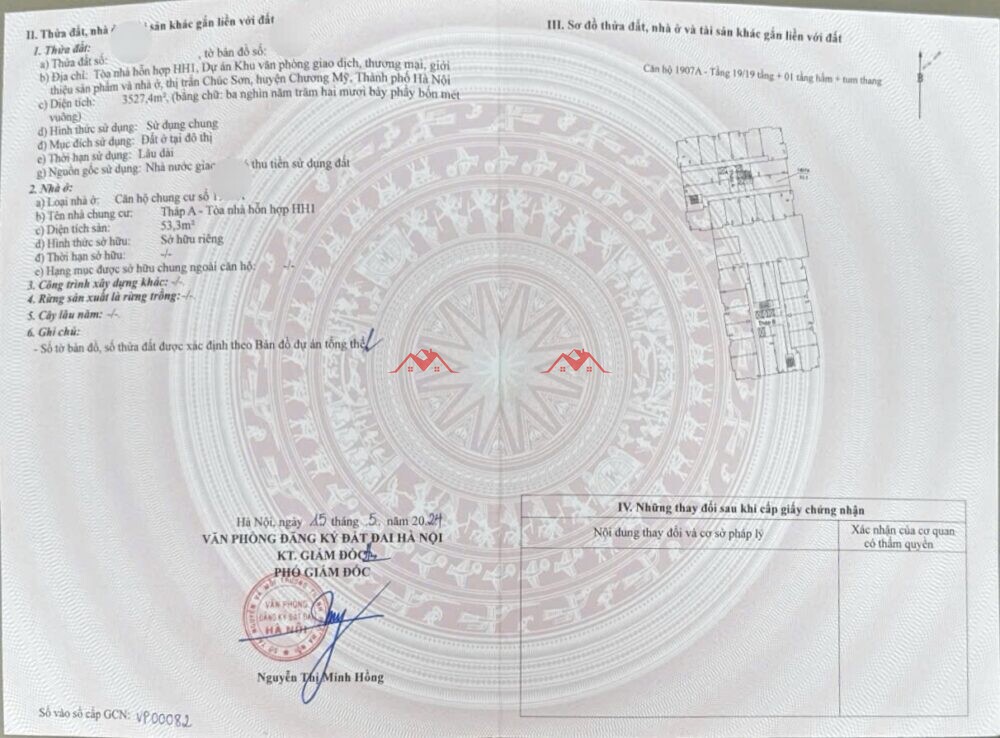 II. Thửa đất, nhà ở sản khác gắn liền với đất
1. Thửa đất:
a) Thửa đất số: , tờ bản đồ số:
b) Địa chỉ: Tòa nhà hỗn hợp HH1, Dự án Khu văn phòng giao dịch, thương mại, giới
thiệu sản phẩm và nhà ở, thị trấn Chúc Sơn, huyện Chương Mỹ, Thành phố Hà Nội
c) Diện tích: 3527,4m², (bằng chữ: ba nghìn năm trăm hai mươi bảy phẩy bốn mét
vuông)
d) Hình thức sử dụng: Sử dụng chung
đ) Mục đích sử dụng: Đất ở tại đô thị
e) Thời hạn sử dụng: Lâu dài
g) Nguồn gốc sử dụng: Nhà nước giao thu tiền sử dụng đất
2. Nhà ở:
a) Loại nhà ở: Căn hộ chung cư số
b) Tên nhà chung cư: Tháp A - Tòa nhà hỗn hợp HH1
c) Diện tích sàn: 53,3m²
d) Hình thức sở hữu: Sở hữu riêng
đ) Thời hạn sở hữu: -/-
e) Hạng mục được sở hữu chung ngoài căn hộ: -/-
3. Công trình xây dựng khác: -/-
4. Rừng sản xuất là rừng trồng: -/-
5. Cây lâu năm: -/-
6. Ghi chú:
- Số tờ bản đồ, số thửa đất được xác định theo Bản đồ dự án tổng thể
Hà Nội, ngày 15 tháng 5 năm 2024
VĂN PHÒNG ĐĂNG KÝ ĐẤT ĐAI HÀ NỘI
KT. GIÁM ĐỐC
PHÓ GIÁM ĐỐC
VĂN PHÒNG
ĐĂNG KÝ ĐẤT ĐAI
HÀ NỘI
Nguyễn Thị Minh Hồng
Số vào sổ cấp GCN: VP00082
III. Sơ đồ thửa đất, nhà ở và tài sản khác gắn liền với đất
Căn hộ 1907A - Tầng 19/19 tầng + 01 tầng hầm + tum thang
B
Tháp B
IV. Những thay đổi sau khi cấp giấy chứng nhận
Nội dung thay đổi và cơ sở pháp lý
Xác nhận của cơ quan
có thẩm quyền